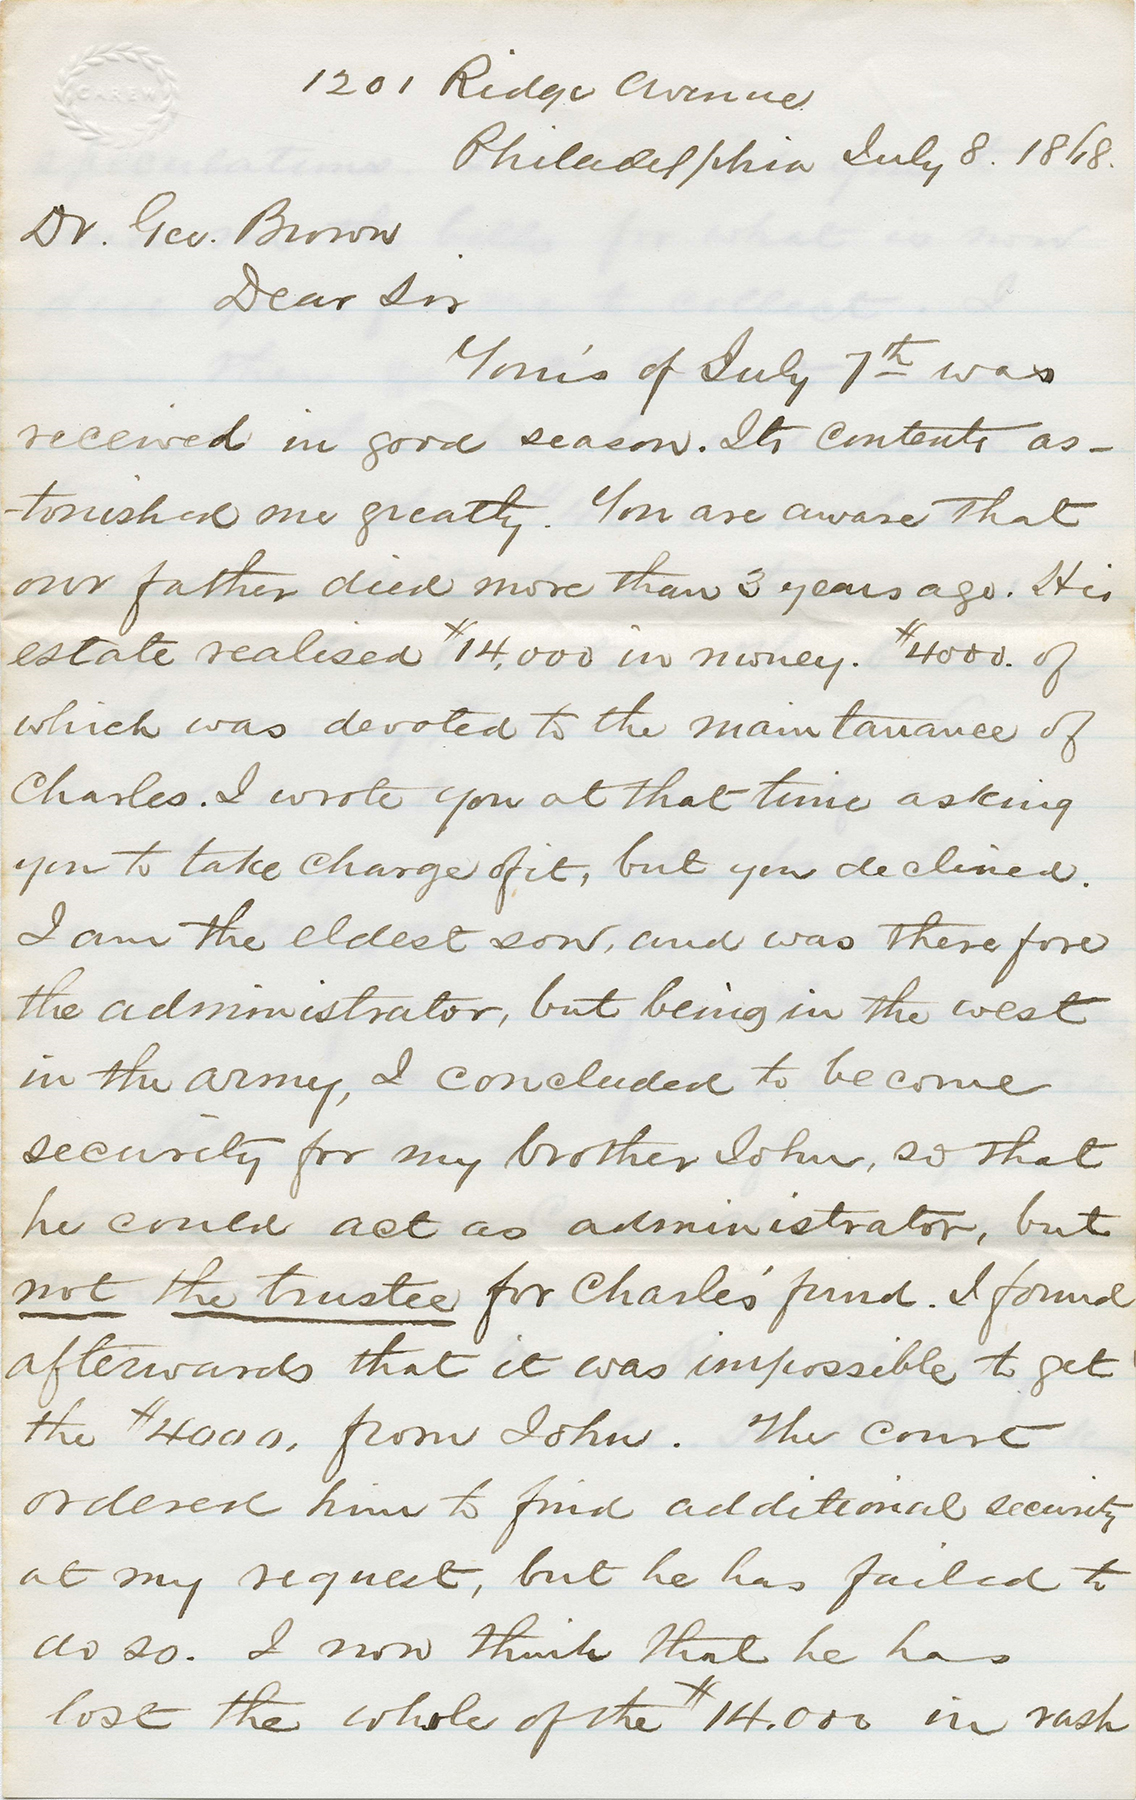 CAREW
1201 Ridge Avenue
Philadelphia July 8. 1868.
Dr. Geo. Brown
Dear Sir
Your's of July 7th was
received in good season. Its contents as-
-tonished me greatly. You are aware that
our father died more than 3 years ago. His
estate realised $14,000 in money. $4000. of
which was devoted to the maintanance of
Charles. I wrote you at that time asking
you to take charge of it, but you declined.
I am the eldest son, and was therefore
the administrator, but being in the west
in the army, I concluded to become
security for my brother John, so that
he could act as administrator, but
not the trustee for Charles' fund. I found
afterwards that it was impossible to get
the $4000, from John. The court
ordered him to find additional security
at my request, but he has failed to
do so. I now think that he has
lost the whole of the $14.000 in rash